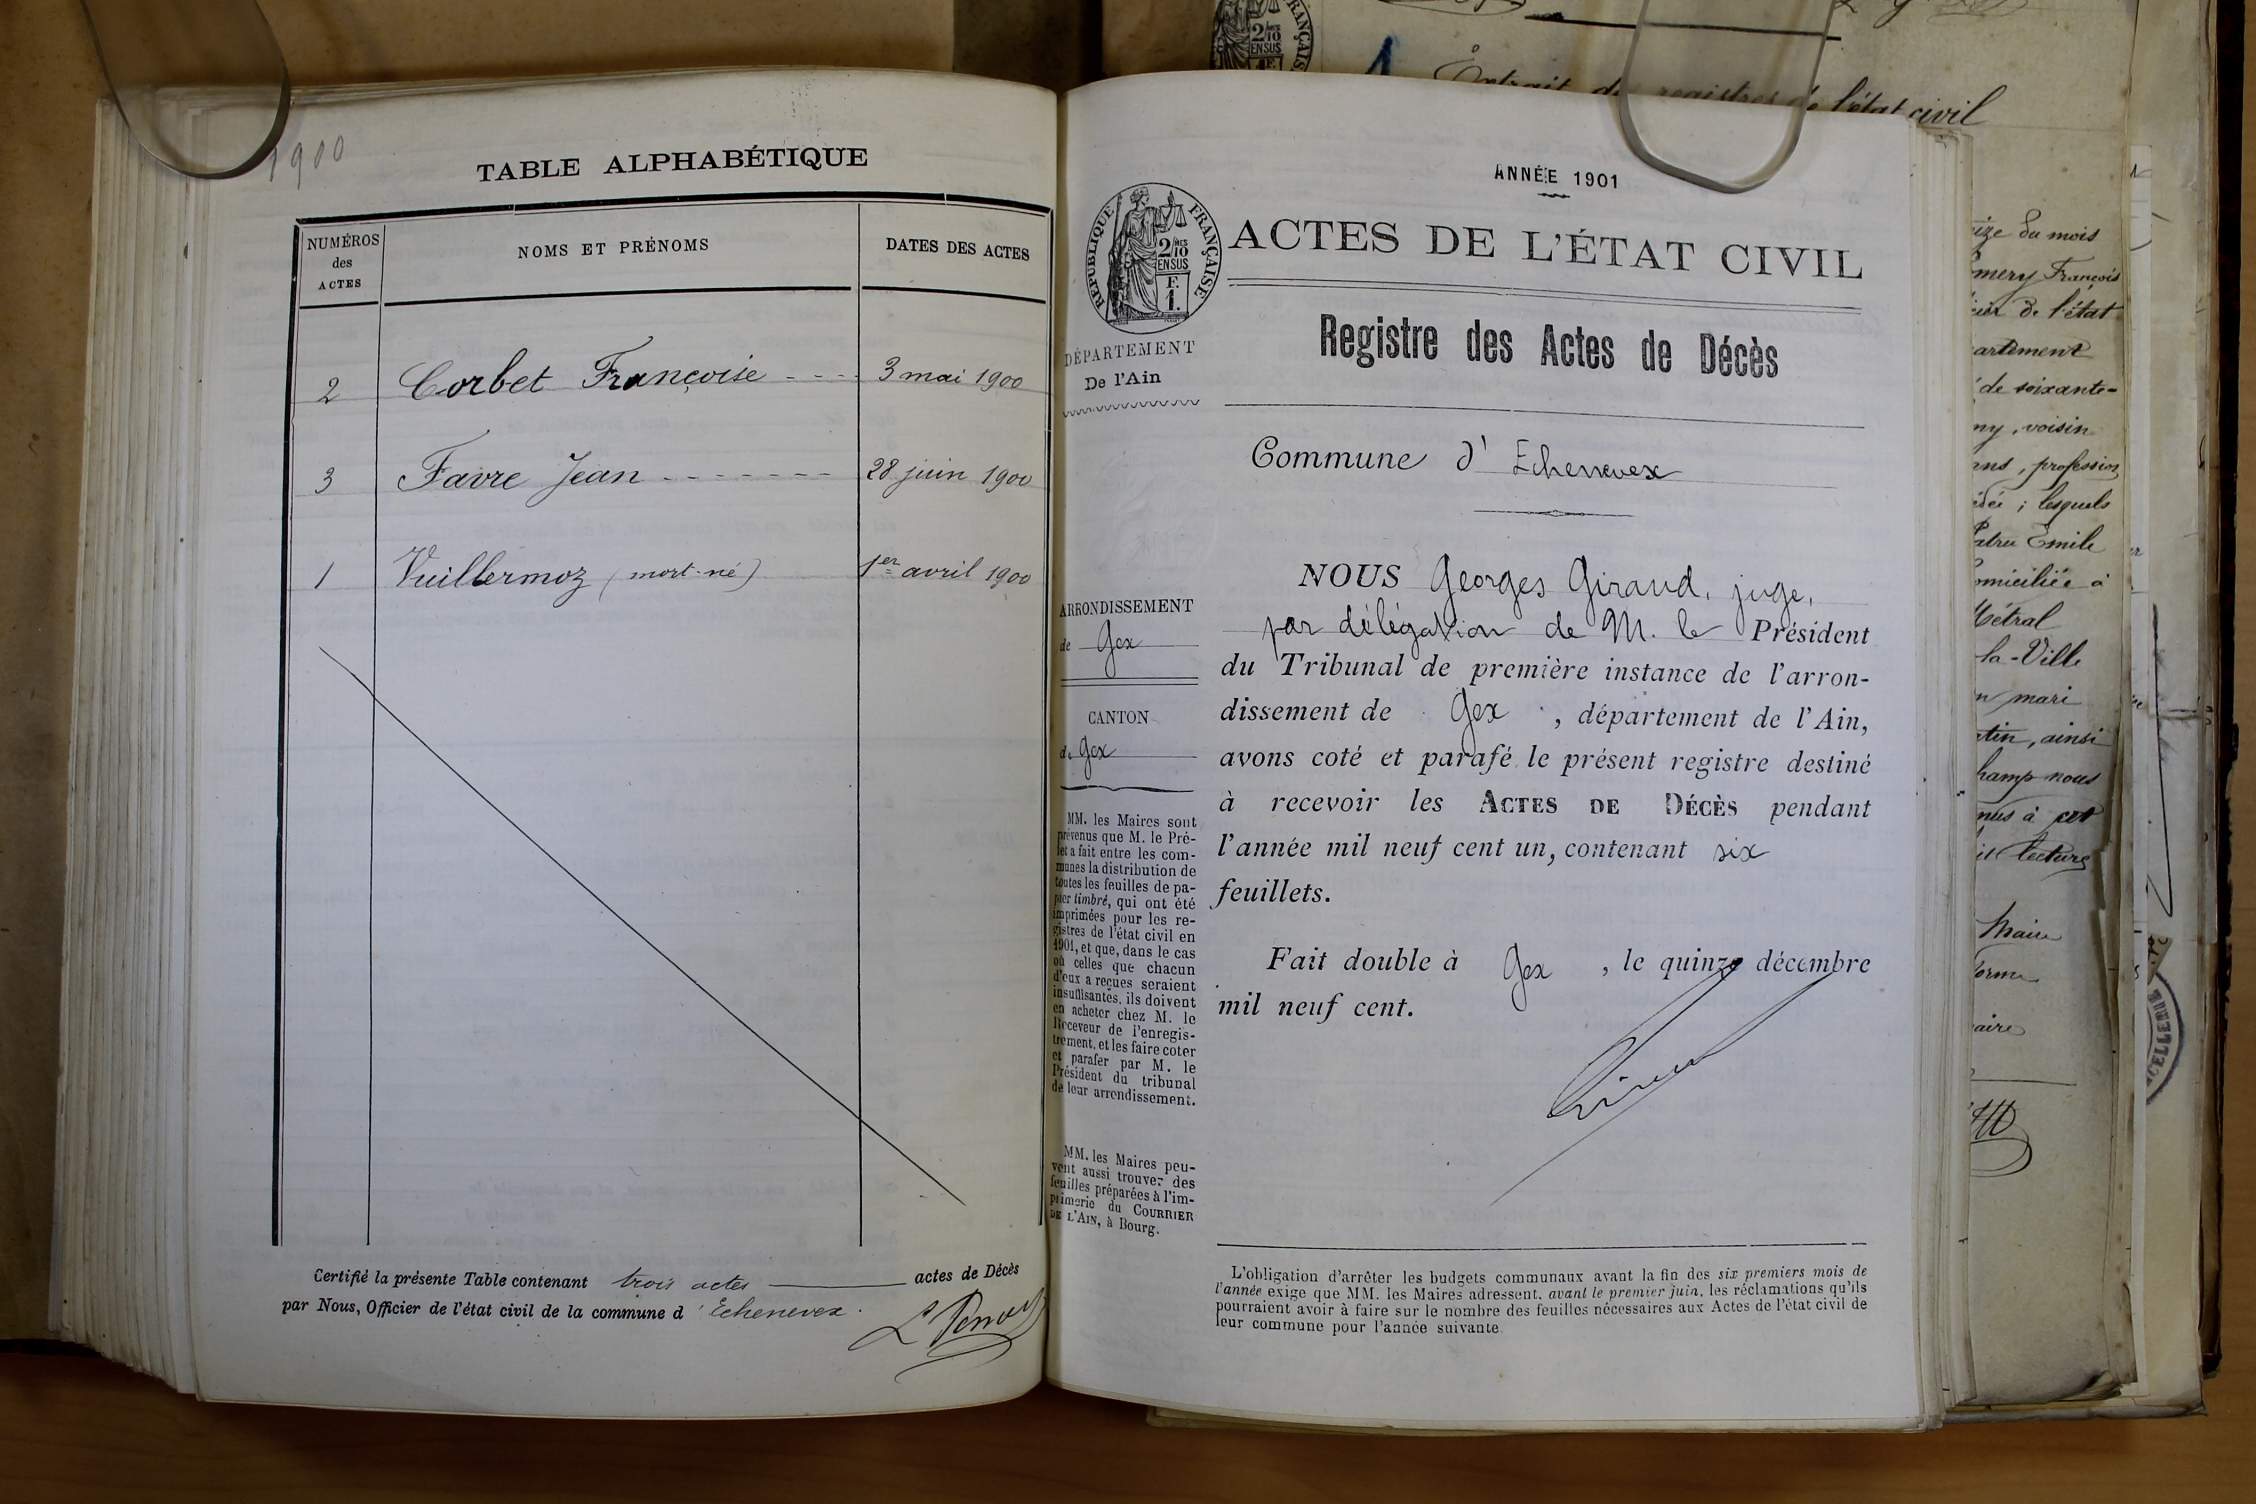 1900
TABLE ALPHABÉTIQUE
NUMÉROS
des
ACTES
NOMS ET PRÉNOMS
DATES DES ACTES
2 Corbet Françoise - - - - 3 mai 1900
3 Favre Jean - - - - - - - 28 juin 1900
1 Vuillermoz (mort-né) 1er avril 1900
Certifié la présente Table contenant trois actes actes de Décès
par Nous, Officier de l'état civil de la commune d'Echenevex.
ANNÉE 1901
RÉPUBLIQUE FRANÇAISE
2/10 MES
EN SUS
F.
1.
ACTES DE L'ÉTAT CIVIL
Registre des Actes de Décès
DÉPARTEMENT
De l'Ain
Commune d' Echenevex
ARRONDISSEMENT
de Gex
CANTON
de Gex
MM. les Maires sont
prévenus que M. le Pré-
fet a fait entre les com-
munes la distribution de
toutes les feuilles de pa-
pier timbré, qui ont été
imprimées pour les re-
gistres de l'état civil en
1901, et que, dans le cas
où celles que chacun
d'eux a reçues seraient
insuffisantes, ils doivent
en acheter chez M. le
Receveur de l'enregis-
trement, et les faire coter
et parafer par M. le
Président du tribunal
de leur arrondissement.
MM. les Maires peu-
vent aussi trouver des
feuilles préparées à l'im-
primerie du COURRIER
DE L'AIN, à Bourg.
NOUS Georges Giraud, juge,
par délégation de M. le Président
du Tribunal de première instance de l'arron-
dissement de Gex, département de l'Ain,
avons coté et parafé le présent registre destiné
à recevoir les ACTES DE DÉCÈS pendant
l'année mil neuf cent un, contenant six
feuillets.
Fait double à Gex, le quinze décembre
mil neuf cent.
L'obligation d'arrêter les budgets communaux avant la fin des six premiers mois de
l'année exige que MM. les Maires adressent, avant le premier juin, les réclamations qu'ils
pourraient avoir à faire sur le nombre des feuilles nécessaires aux Actes de l'état civil de
leur commune pour l'année suivante.
Extrait du registres de l'état civil
du mois
François
de l'état
de soixante-
voisin
profession
; lesquels
Emile
à
Métral
la-Ville
mari
ainsi
nous
à cet
lecture
Maire